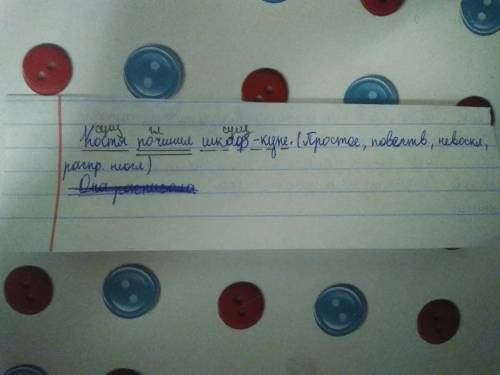 сущ гл сущ
Костя починил шкаф-купе. (Простое, повеств, невоскл,
распр. неосл)
Она расписала